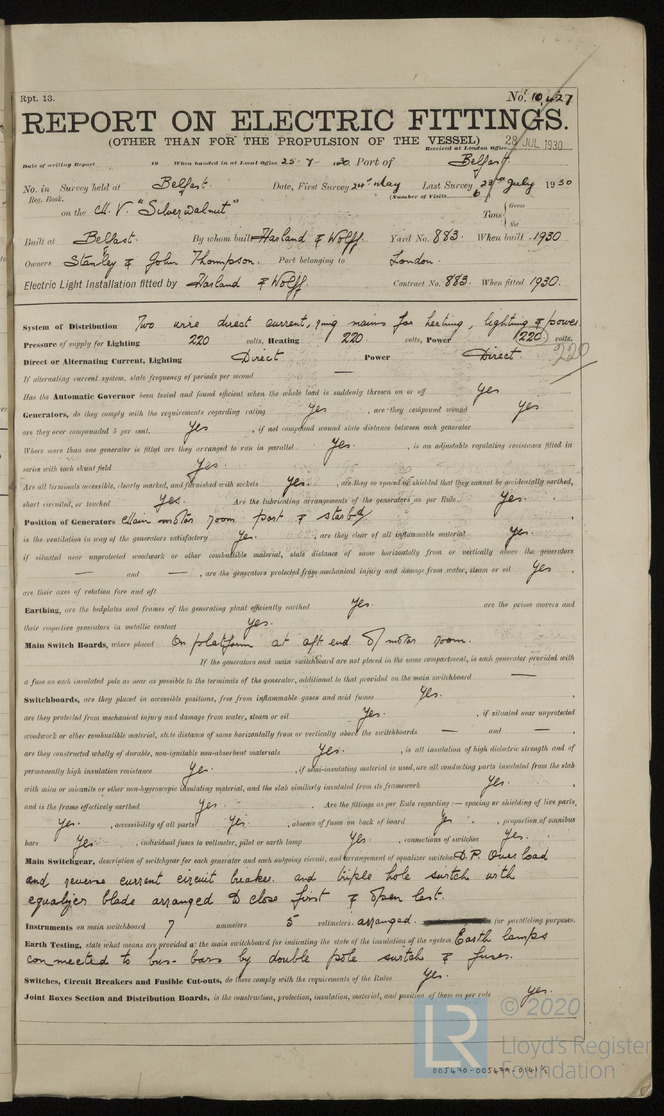 Rpt. 13.
No. 10,427
REPORT ON ELECTRIC FITTINGS.
(OTHER THAN FOR THE PROPULSION OF THE VESSEL)
28 JUL 1930
Received at London Office
Date of writing Report 19 When handed in at Local Office 25-7-1930 Port of Belfast.
No. in Survey held at Belfast. Date, First Survey 24th May Last Survey 23rd July 1930
Reg. Book. (Number of Visits 6
on the M.V. "Silverwalnut" Tons { Gross
Net
Built at Belfast. By whom built Harland & Wolff. Yard No. 883. When built 1930
Owners Stanley & John Thompson. Port belonging to London.
Electric Light Installation fitted by Harland & Wolff. Contract No. 883. When fitted 1930.
System of Distribution Two wire direct current, ring mains for heating, lighting & power
Pressure of supply for Lighting 220 volts, Heating 220 volts, Power 220 volts.
220
Direct or Alternating Current, Lighting Direct Power Direct.
If alternating current system, state frequency of periods per second —
Has the Automatic Governor been tested and found efficient when the whole load is suddenly thrown on or off Yes
Generators, do they comply with the requirements regarding rating Yes, are they compound wound Yes
are they over compounded 5 per cent. Yes, if not compound wound state distance between each generator
Where more than one generator is fitted are they arranged to run in parallel Yes., is an adjustable regulating resistance fitted in
series with each shunt field Yes.
Are all terminals accessible, clearly marked, and furnished with sockets Yes., are they so spaced or shielded that they cannot be accidentally earthed,
short circuited, or touched Yes. Are the lubricating arrangements of the generators as per Rule Yes.
Position of Generators Main motor room port & starbd
is the ventilation in way of the generators satisfactory Yes., are they clear of all inflammable material Yes.
if situated near unprotected woodwork or other combustible material, state distance of same horizontally from or vertically above the generators
— and —, are the generators protected from mechanical injury and damage from water, steam or oil Yes,
are their axes of rotation fore and aft
Earthing, are the bedplates and frames of the generating plant efficiently earthed Yes. are the prime movers and
their respective generators in metallic contact Yes.
Main Switch Boards, where placed On platform at aft end of motor room.
If the generators and main switchboard are not placed in the same compartment, is each generator provided with
a fuse on each insulated pole as near as possible to the terminals of the generator, additional to that provided on the main switchboard —
Switchboards, are they placed in accessible positions, free from inflammable gases and acid fumes Yes.
are they protected from mechanical injury and damage from water, steam or oil Yes., if situated near unprotected
woodwork or other combustible material, state distance of same horizontally from or vertically above the switchboards — and —
are they constructed wholly of durable, non-ignitable non-absorbent materials Yes., is all insulation of high dielectric strength and of
permanently high insulation resistance Yes., if semi-insulating material is used, are all conducting parts insulated from the slab
with mica or micanite or other non-hygroscopic insulating material, and the slab similarly insulated from its framework Yes.
and is the frame effectively earthed Yes. Are the fittings as per Rule regarding:— spacing or shielding of live parts,
Yes., accessibility of all parts Yes., absence of fuses on back of board Yes., proportion of omnibus
bars Yes., individual fuses to voltmeter, pilot or earth lamp Yes., connections of switches Yes.
Main Switchgear, description of switchgear for each generator and each outgoing circuit, and arrangement of equalizer switches D.P. Over load
and reverse current circuit breaker. and triple hole switch with
equalizer blade arranged to close first & open last.
Instruments on main switchboard 7 ammeters 5 voltmeters arranged. for paralleling purposes.
Earth Testing, state what means are provided at the main switchboard for indicating the state of the insulation of the system Earth lamps
connected to bus-bars by double pole switch & fuses.
Switches, Circuit Breakers and Fusible Cut-outs, do these comply with the requirements of the Rules Yes.
Joint Boxes Section and Distribution Boards, is the construction, protection, insulation, material, and position of these as per rule Yes.
© 2020
LR
Lloyd's Register
Foundation